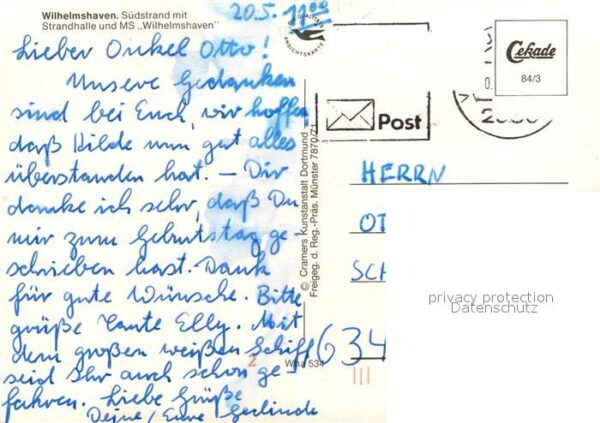 Wilhelmshaven. Südstrand mit
Strandhalle und MS „Wilhelmshaven"
20.5. 11⁰⁰
Lieber Onkel Otto!
Unsere Gedanken
sind bei Euch, wir hoffen
daß Hilde nun gut alles
überstanden hat. – Dir
danke ich sehr, daß Du
mir zum Geburtstag ge-
schrieben hast. Dank
für gute Wünsche. Bitte
grüße Tante Elly. Mit
dem großen weißen Schiff
seid Ihr auch schon ge-
fahren. Liebe Grüße
Deine/Eure Gerlinde
QUALITÄTS
ANSICHTSKARTE
© Cramers Kunstanstalt Dortmund
Freigeg. d. Reg.-Präs. Münster 7870/71
Wha 534
2
Post
Cekade
84/3
HERRN
OT
SCH
634
privacy protection
Datenschutz